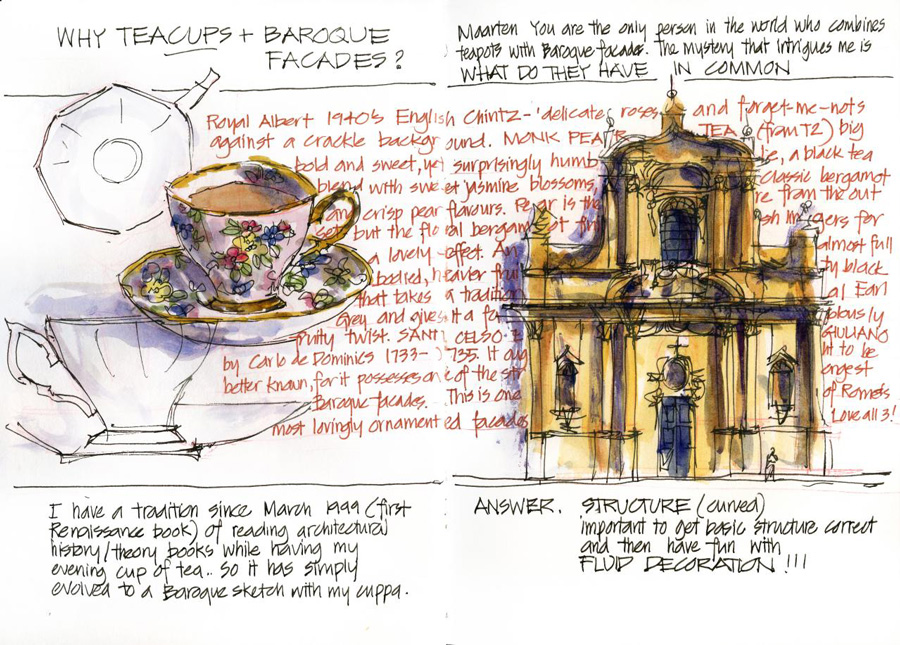 WHY TEACUPS + BAROQUE
FACADES?
Maarten You are the only person in the world who combines
teapots with Baroque facades. The mystery that intrigues me is
WHAT DO THEY HAVE IN COMMON
Royal Albert 1940's English Chintz - 'delicate roses and forget-me-nots
against a crackle background. MONK PEAR TEA (from T2) big
bold and sweet, yet surprisingly humb le, a black tea
blend with sweet jasmine blossoms, classic bergamot
and crisp pear flavours. Pear is the re from the out
set but the floral bergamot fin sh lingers for
a lovely effect. An almost full
bodied, heavier frui ty black
that takes a tradition al Earl
Grey and gives it a fa bulously
fruity twist. SANTI CELSO E GIULIANO
by Carlo de Dominics 1733-1735. It oug ht to be
better known, for it possesses one of the str ongest
Baroque facades. of Rome's
This is one
most lovingly ornamented facades Love all 3!
I have a tradition since March 1999 (first
Renaissance book) of reading architectural
history/theory books while having my
evening cup of tea.. So it has simply
evolved to a Baroque sketch with my cuppa.
ANSWER. STRUCTURE (curved)
important to get basic structure correct
and then have fun with
FLUID DECORATION!!!